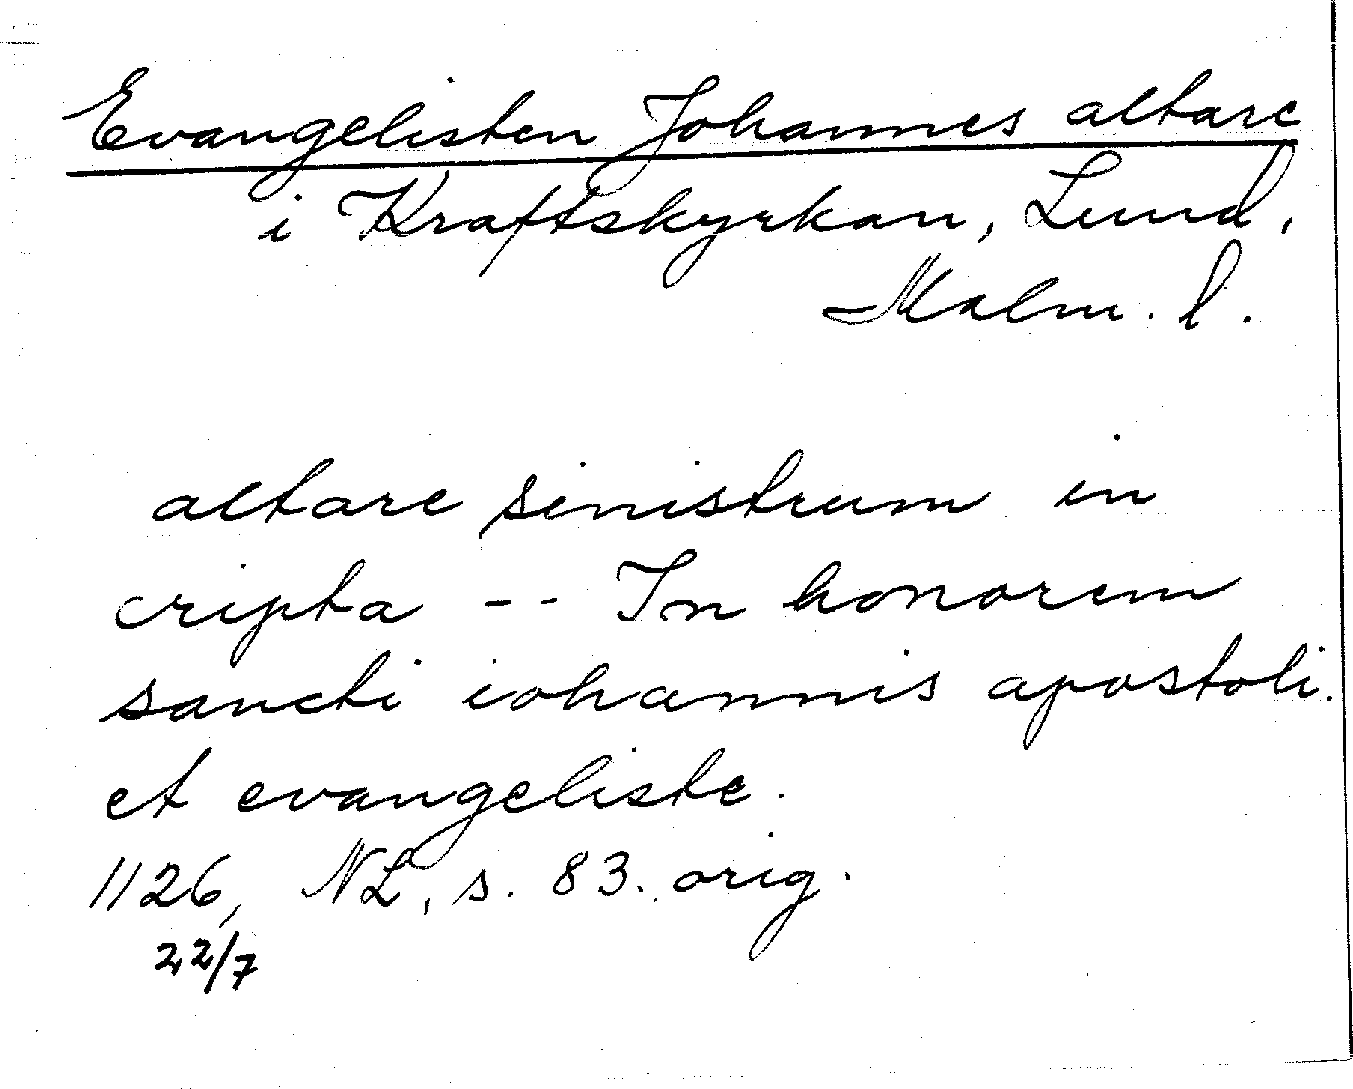 Evangelisten Johannes altare
i Kraftskyrkan, Lund,
Malm. l.
altare sinistrum in
cripta -- In honorem
sancti iohannis apostoli.
et evangeliste.
1126, NL, s. 83. orig.
22/7